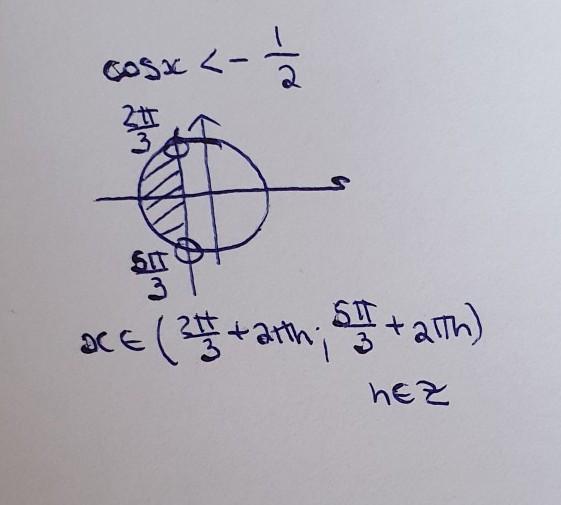 cosx < - 1/2
2π/3
5π/3
x ∈ (2π/3 + 2πn; 5π/3 + 2πn)
n ∈ Z